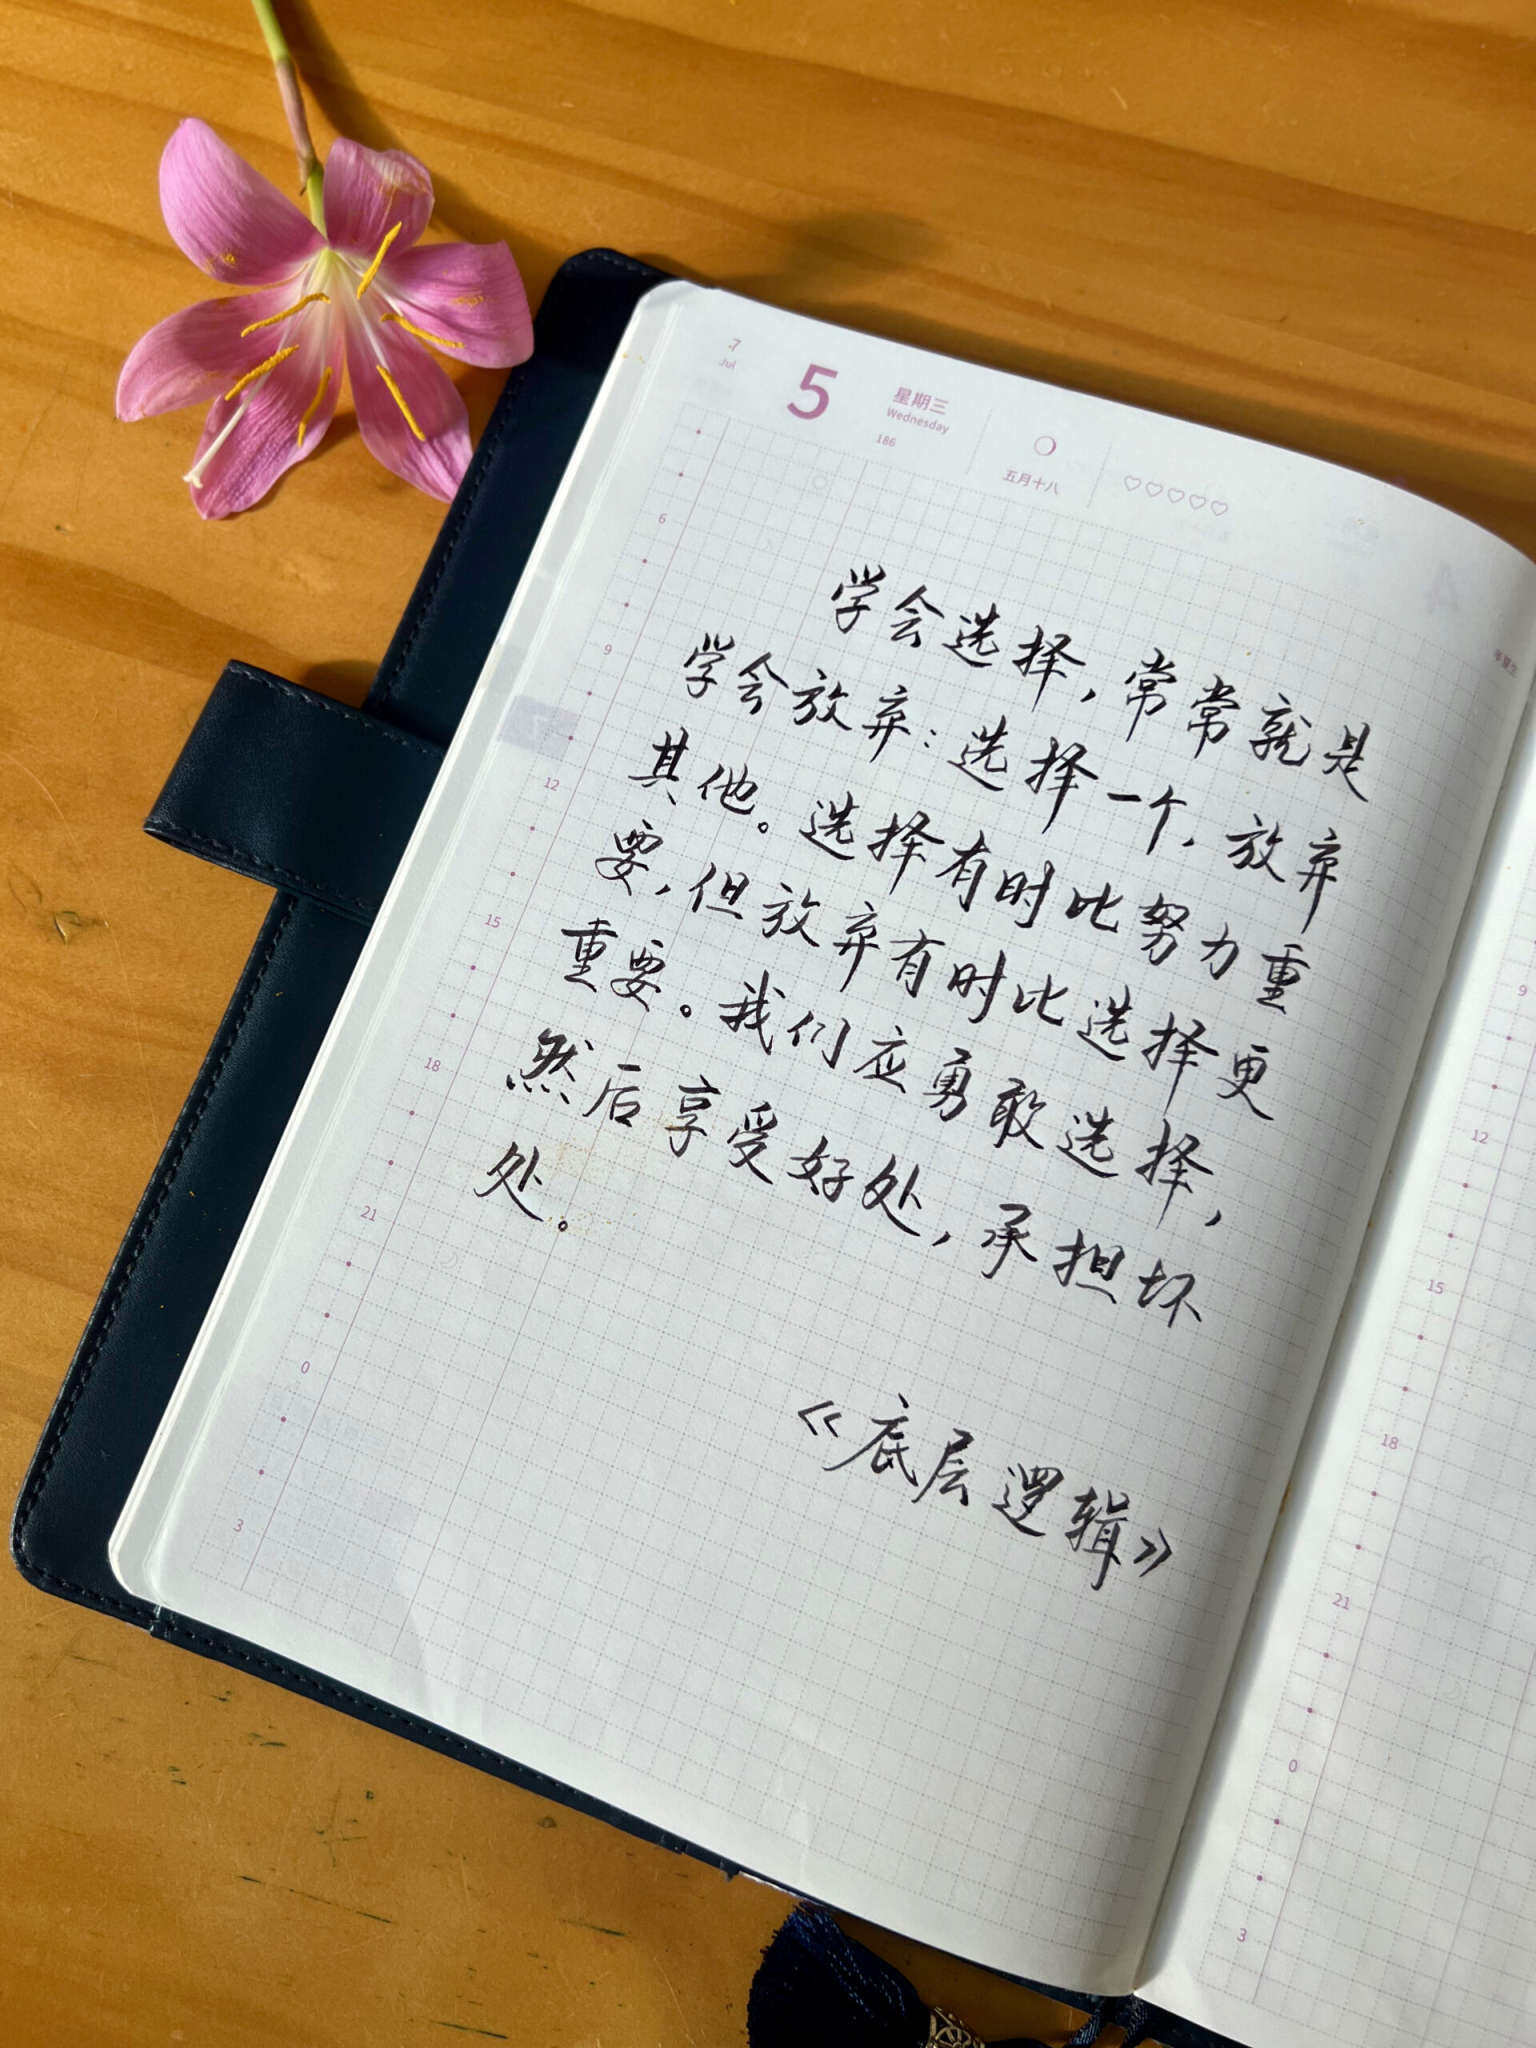 7
Jul
5
星期三
Wednesday
186
五月十八
学会选择，常常就是
学会放弃：选择一个，放弃
其他。选择有时比努力重
要，但放弃有时比选择更
重要。我们应勇敢选择，
然后享受好处，承担坏
处。
《底层逻辑》
6
9
12
15
18
21
0
3
9
12
15
18
21
0
3